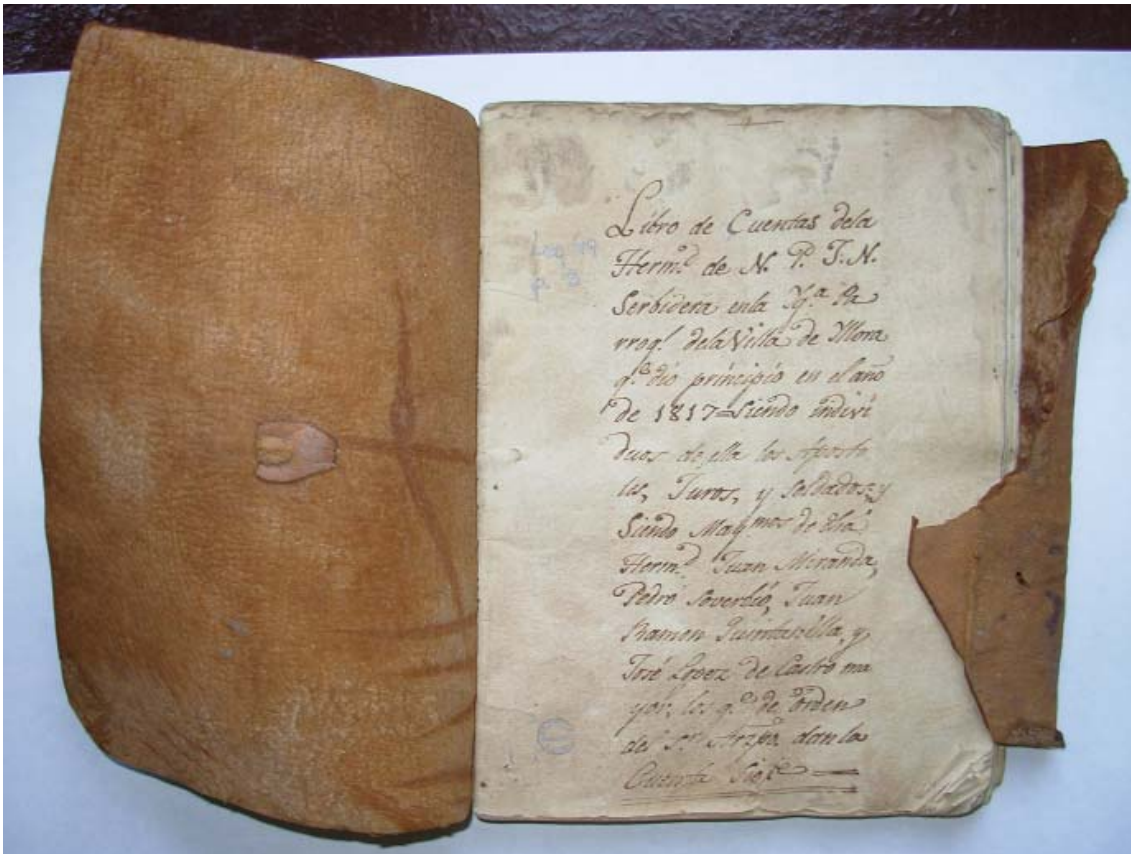 Libro de Cuentas dela
Herm.d de N. P. J. N.
Serbidera enla Yg.a Pa
rroq.l dela Villa de Mora
q.e dio principio en el año
de 1817 = Siendo indivi
duos de ella los Aposto
les, Juros, y Soldados, y
Siendo May.mos de dha
Herm.d Juan Miranda,
Pedro Soverbio, Juan
Ramon Quintanilla, y
José Lopez de Castro ma
yor, los q.e de orden
del S.or Arzpo. dan la
Cuenta Sig.te